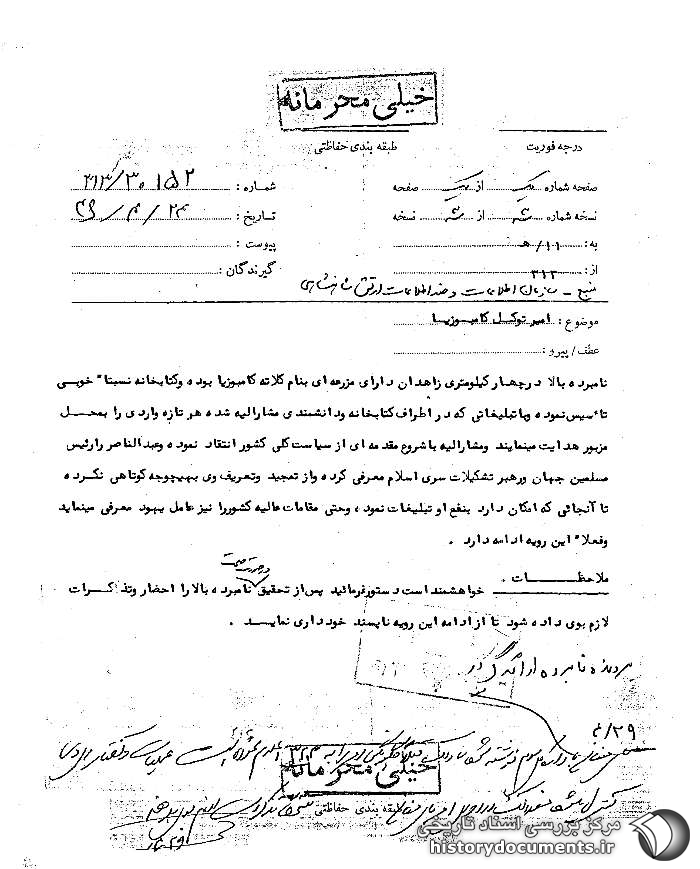 خیلی محرمانه
درجه فوریت
طبقه بندی حفاظتی
صفحه شماره یک از یک صفحه
شماره : ۳۱۳/۳۰۱۵۲
نسخه شماره از نسخه
تاریخ : ۴۹/۴/۲۴
به : ۱۱/ه
پیوست :
از : ۳۱۲
گیرندگان :
منبع - سازمان اطلاعات و ضد اطلاعات ارتش شاهنشاهی
موضوع : امیر توکل کامبوزیا
عطف/پیرو :
نامبرده بالا در چهار کیلومتری زاهدان دارای مزرعه ای بنام کلاته کامبوزیا بوده وکتابخانه نسبتا" خوبی
تاسیس نموده وباتبلیغاتی که در اطراف کتابخانه ودانشمندی مشارالیه شده هر تازه واردی را بمحل
مزبور هدایت مینمایند ومشارالیه باشروع مقدمه ای از سیاست کلی کشور انتقاد نموده وعبدالناصر رارئیس
مسلمین جهان ورهبر تشکیلات سری اسلام معرفی کرده واز تمجید وتعریف وی بهیچوجه کوتاهی نکرده
تا آنجائی که امکان دارد بنفع او تبلیغات نمود ، وحتی مقامات عالیه کشوررا نیز عامل یهود معرفی مینماید
وفعلا" این رویه ادامه دارد .
در صورت صحت
ملاحظات .
خواهشمند است دستورفرمائید پس از تحقیق نامبرده بالا را احضار وتذکرات
لازم بوی داده شود تا از ادامه این رویه ناپسند خودداری نماید .
پرونده نامبرده ارائه گردد
۴/۲۹
خیلی محرمانه
طبقه بندی حفاظتی
مرکز بررسی اسناد تاریخی
historydocuments.ir